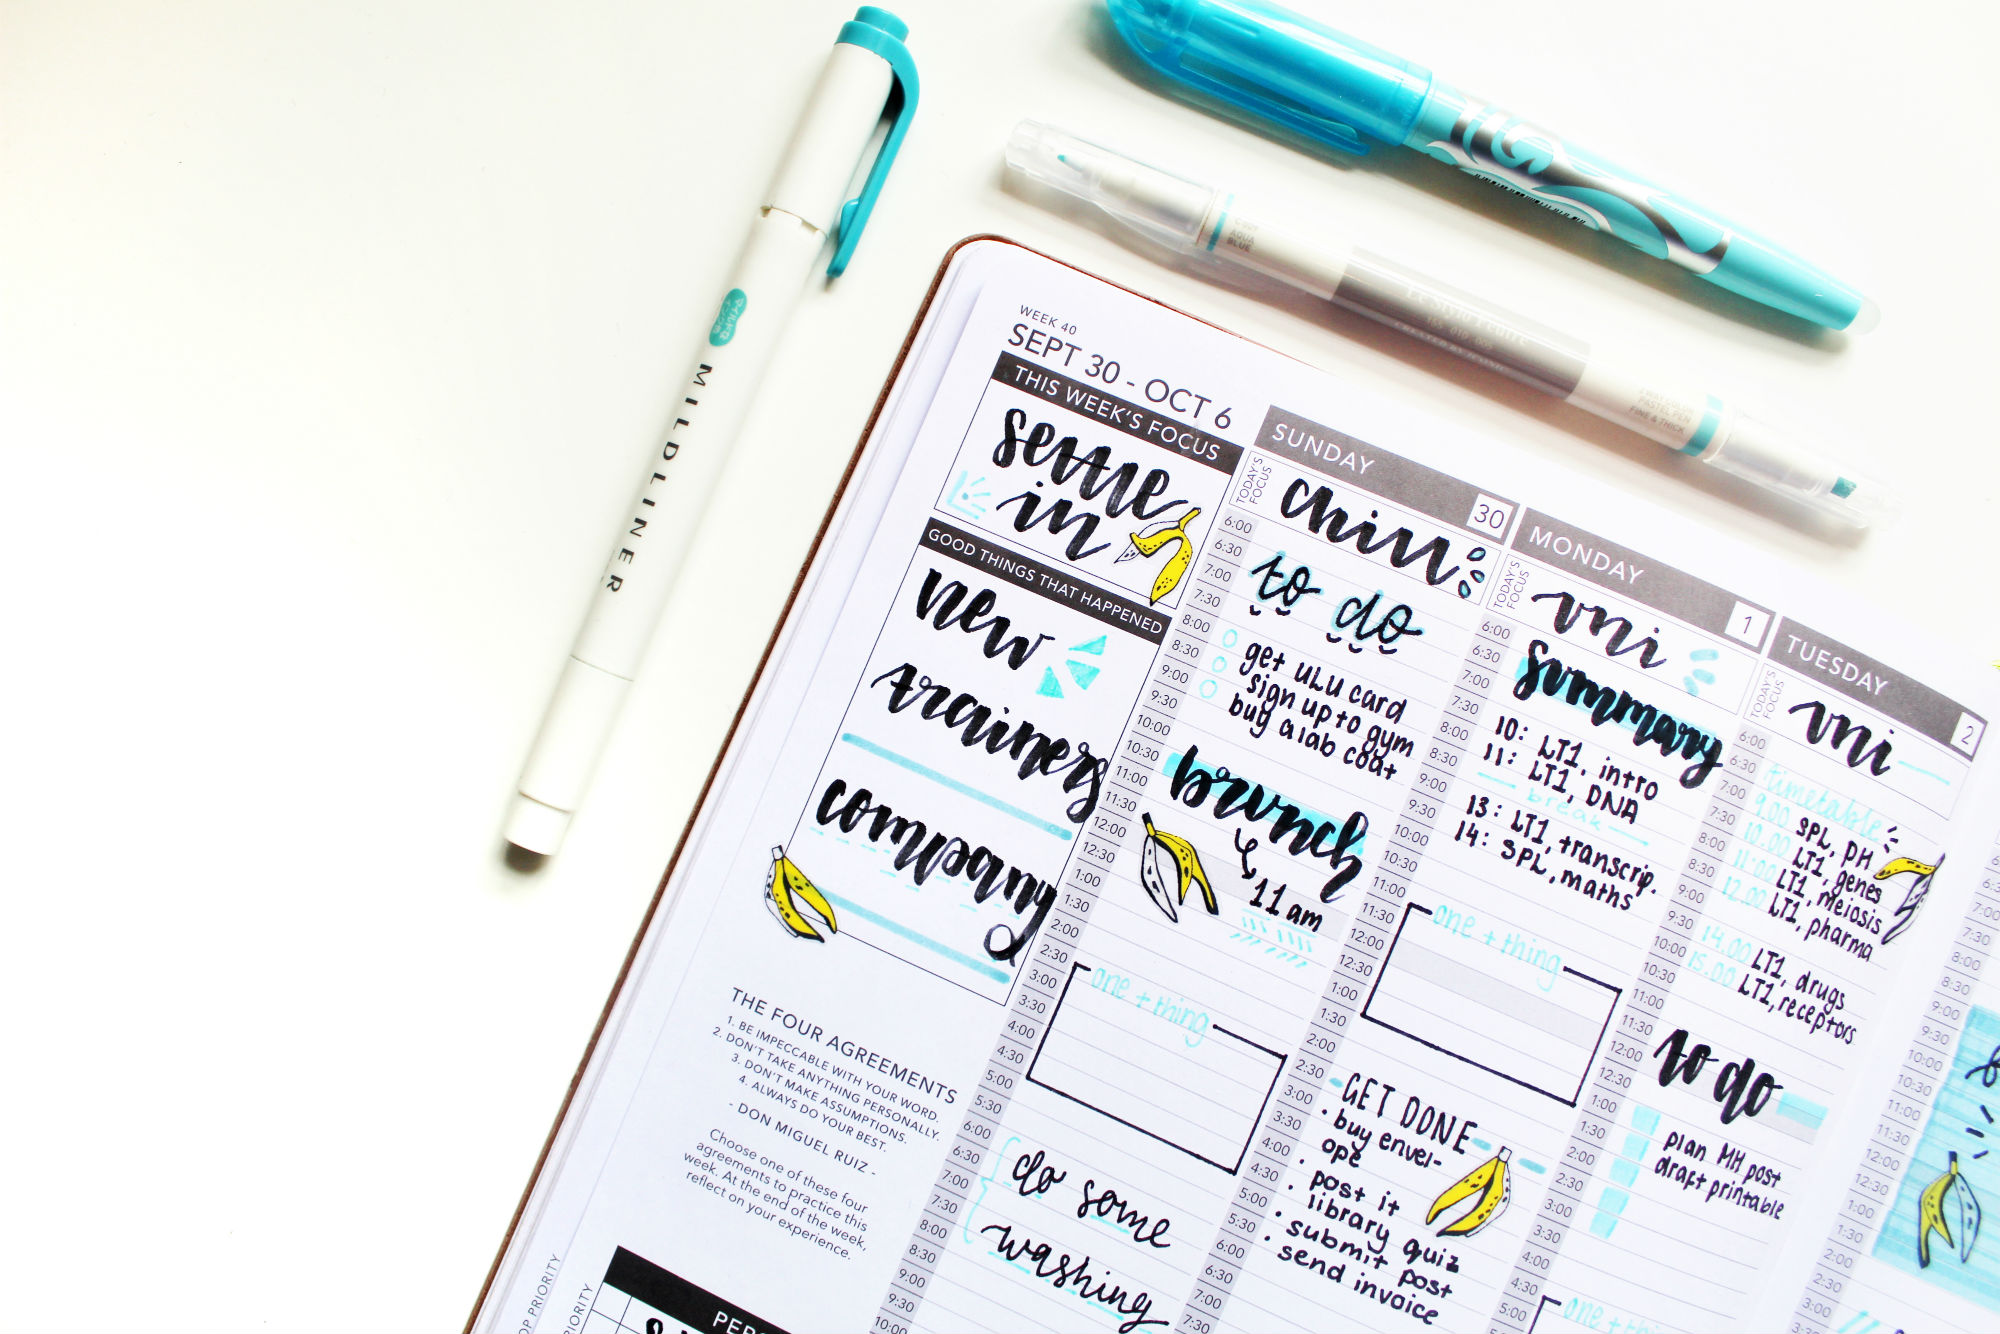 MILDLINER
AQUA
BLUE
FINE & THICK
WEEK 40
SEPT 30 - OCT 6
THIS WEEK'S FOCUS
settle
in
GOOD THINGS THAT HAPPENED
new
trainers
company
THE FOUR AGREEMENTS
1. BE IMPECCABLE WITH YOUR WORD.
2. DON'T TAKE ANYTHING PERSONALLY.
3. DON'T MAKE ASSUMPTIONS.
4. ALWAYS DO YOUR BEST.
- DON MIGUEL RUIZ -
Choose one of these four
agreements to practice this
week. At the end of the week,
reflect on your experience.
OP PRIORITY
PRIORITY
PERS
SUNDAY
30
TODAY'S
FOCUS
chill
6:00
6:30
7:00
7:30
8:00
8:30
9:00
9:30
10:00
10:30
11:00
11:30
12:00
12:30
1:00
1:30
2:00
2:30
3:00
3:30
4:00
4:30
5:00
5:30
6:00
6:30
7:00
7:30
8:00
8:30
9:00
9:30
10:00
to do
get ULU card
sign up to gym
buy a lab coat
brunch
11 am
one + thing
do some
washing
MONDAY
1
TODAY'S
FOCUS
uni
6:00
6:30
7:00
7:30
8:00
8:30
9:00
9:30
10:00
10:30
11:00
11:30
12:00
12:30
1:00
1:30
2:00
2:30
3:00
3:30
4:00
4:30
5:00
5:30
6:00
6:30
7:00
7:30
summary
10: LT1, intro
11: LT1, DNA
break
13: LT1, transcrip.
14: SPL, maths
one + thing
GET DONE
· buy envel-
ope
· post it
· library quiz
· submit post
· send invoice
TUESDAY
2
TODAY'S
FOCUS
uni
6:00
6:30
7:00
7:30
8:00
8:30
9:00
9:30
10:00
10:30
11:00
11:30
12:00
12:30
1:00
1:30
2:00
2:30
3:00
3:30
4:00
4:30
5:00
timetable
9.00 SPL, pH
10.00 LT1, genes
11.00 LT1, meiosis
12.00 LT1, pharma
14.00 LT1, drugs
15.00 LT1, receptors
to do
plan MH post
draft printable
one + thi
7:00
7:30
8:00
8:30
9:00
9:30
10:00
10:30
11:00
11:30
12:00
12:30
1:00
1:30
2:00
2:30
3:00
3:30